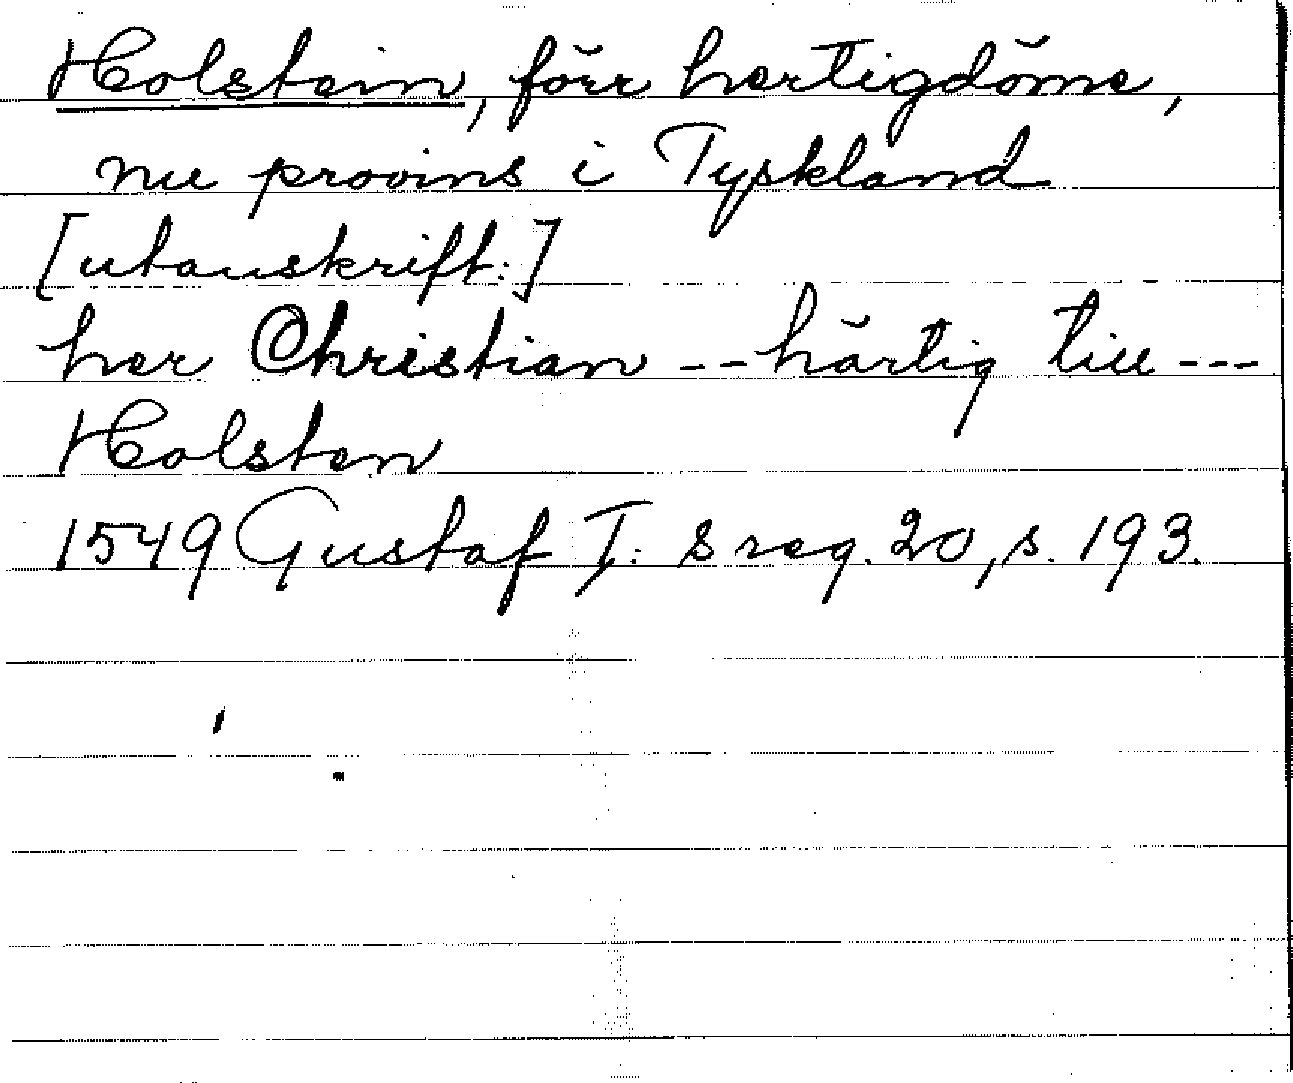 Holstein, förr hertigdöme,
nu provins i Tyskland
[utanskrift:]
her Christian -- härtig till ---
Holsten
1549 Gustaf I: s reg. 20, s. 193.